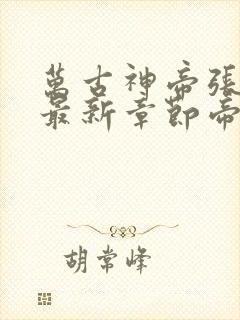 萬古神帝張
最新章節帝
胡常峰